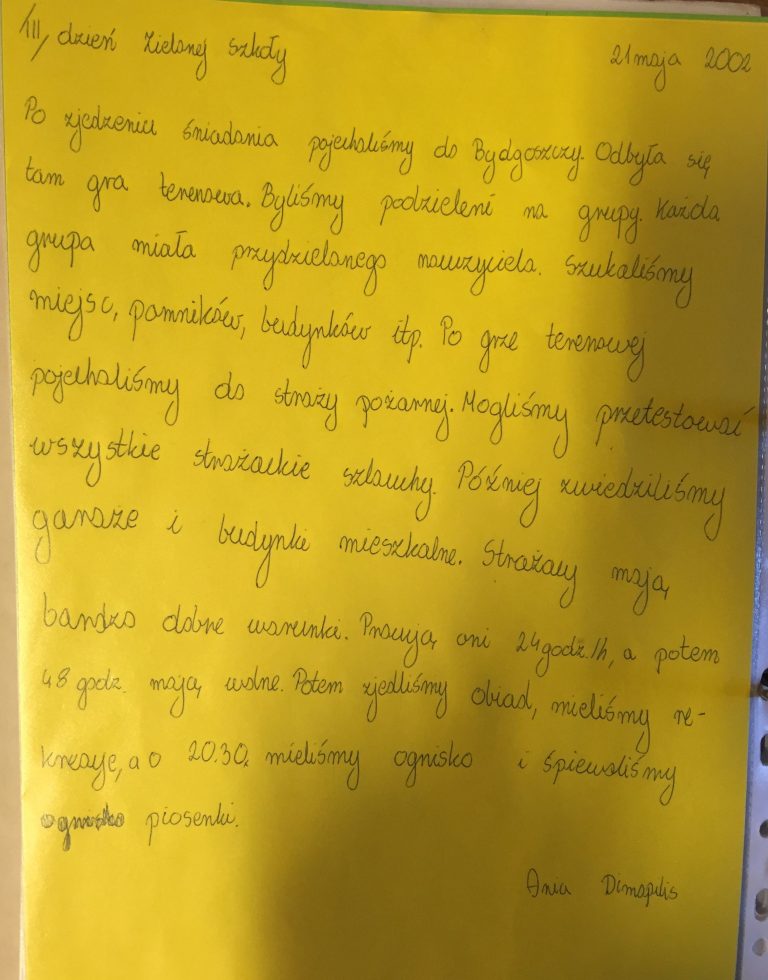 III, dzień Zielonej szkoły 21 maja 2002
Po zjedzeniu śniadania pojechaliśmy do Bydgoszczy. Odbyła się
tam gra terenowa. Byliśmy podzieleni na grupy. Każda
grupa miała przydzielonego nauczyciela. Szukaliśmy
miejsc, pomników, budynków itp. Po grze terenowej
pojechaliśmy do straży pożarnej. Mogliśmy przetestować
wszystkie strażackie szlauchy. Później zwiedziliśmy
garaże i budynki mieszkalne. Strażacy mają
bardzo dobre warunki. Pracują oni 24godz./h, a potem
48 godz. mają wolne. Potem zjedliśmy obiad, mieliśmy re-
kreację, a o 20.30 mieliśmy ognisko i śpiewaliśmy
ognisko piosenki.
Ania